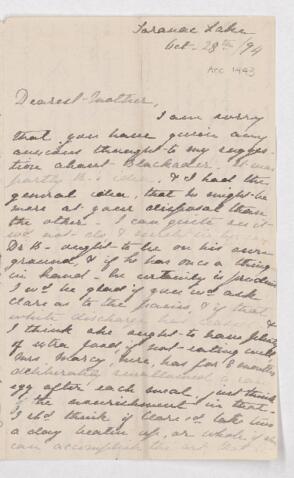 Saranac Lake
Oct- 28th/94
Acc 1443
Dearest Mother,
I am sorry
that you have given any
anxious thought to my sugges-
tion about Blackader. It was
partly B's idea, & I had the
general idea, that he might be
more at your disposal than
the other. I can quite see it
Dr B- ought to be on his own
ground, & if he has once a thing
in hand- he certainly is
I wd be glad if you wd ask
Clare as to the pains, & if that
white discharge has
I think she ought to have plenty
of extra food if not eating well
Mrs. Marcy here, has for 8 months
deliberately swallowed a raw
egg after each meal, just think
of the nourishment in that-
I shd think if Clare cd take two
a day beaten up, or whole if she
can accomplish the art that